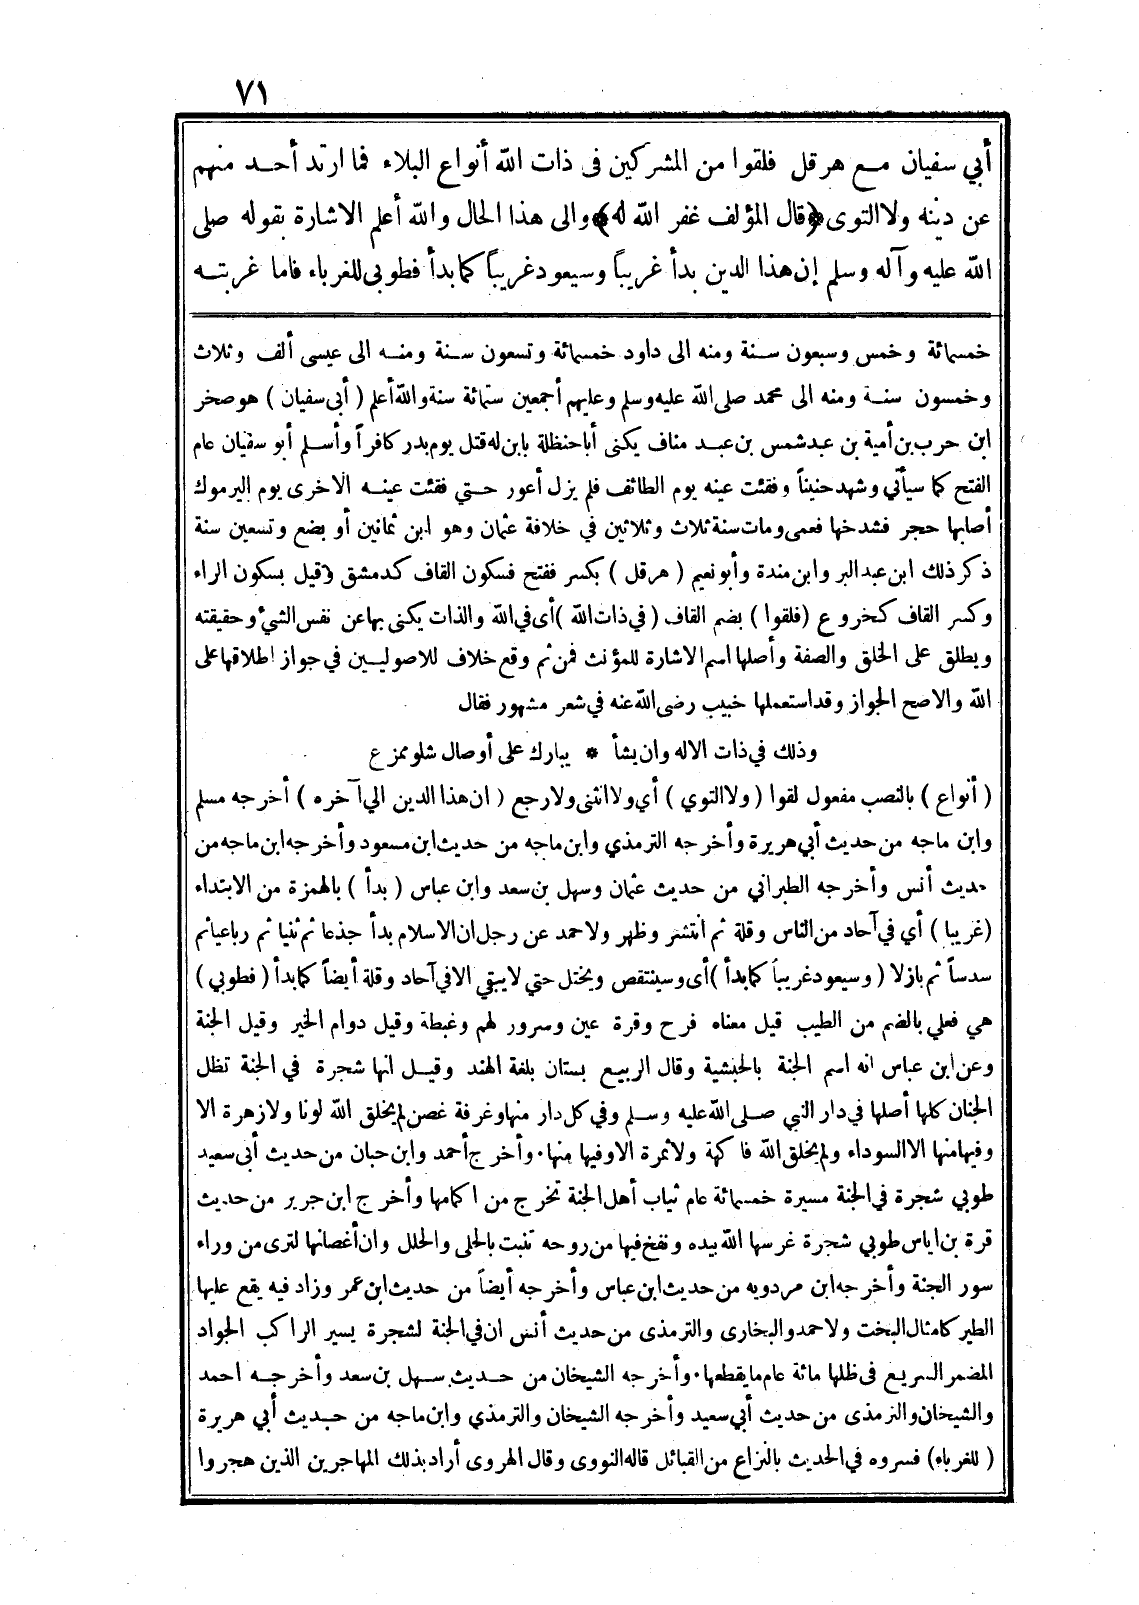 ٧١
أبي سفيان مع هرقل فلقوا من المشركين فى ذات الله أنواع البلاء فما ارتد أحد منهم
عن دينه ولا التوى ﴿قال المؤلف غفر الله له﴾ والى هذا الحال والله أعلم الاشارة بقوله صلى
الله عليه وآله وسلم إن هذا الدين بدأ غريباً وسيعود غريباً كما بدأ فطوبى للغرباء فاما غربته
خمسمائة وخمس وسبعون سنة ومنه الى داود خمسمائة وتسعون سنة ومنه الى عيسى ألف وثلاث
وخمسون سنة ومنه الى محمد صلى الله عليه وسلم وعليهم أجمعين ستمائة سنة والله أعلم ( أبى سفيان ) هو صخر
ابن حرب بن أمية بن عبد شمس بن عبد مناف يكنى أبا حنظلة بابن له قتل يوم بدر كافراً وأسلم أبو سفيان عام
الفتح كما سيأتي وشهد حنيناً وفقئت عينه يوم الطائف فلم يزل أعور حتي فقئت عينه الاخرى يوم اليرموك
أصابها حجر فشدخها فعمى ومات سنة ثلاث وثلاثين في خلافة عثمان وهو ابن ثمانين أو بضع وتسعين سنة
ذكر ذلك ابن عبد البر وابن مندة وأبو نعيم ( هرقل ) بكسر ففتح فسكون القاف كدمشق وقيل بسكون الراء
وكسر القاف كخروع (فلقوا ) بضم القاف ( في ذات الله ) أى في الله والذات يكنى بها عن نفس الشئ وحقيقته
ويطلق على الخلق والصفة وأصلها اسم الاشارة للمؤنث فمن ثم وقع خلاف للاصوليين في جواز اطلاقها على
الله والاصح الجواز وقد استعملها خبيب رضى الله عنه في شعر مشهور فقال
وذلك في ذات الاله وان يشأ * يبارك على أوصال شلو ممزع
( أنواع ) بالنصب مفعول لقوا ( ولا التوي ) أي ولا انثنى ولا رجع ( ان هذا الدين الي آخره ) أخرجه مسلم
وابن ماجه من حديث أبي هريرة وأخرجه الترمذي وابن ماجه من حديث ابن مسعود وأخرجه ابن ماجه من
حديث أنس وأخرجه الطبراني من حديث عثمان وسهل بن سعد وابن عباس ( بدأ ) بالهمزة من الابتداء
(غريبا ) أي في آحاد من الناس وقلة ثم انتشر وظهر ولاحمد عن رجل ان الاسلام بدأ جذعا ثم ثنيا ثم رباعيا ثم
سدساً ثم بازلا ( وسيعود غريباً كما بدأ ) أى وسينتقص ويختل حتي لا يبقي الا في آحاد وقلة أيضاً كما بدأ ( فطوبي )
هي فعلي بالضم من الطيب قيل معناه فرح وقرة عين وسرور لهم وغبطة وقيل دوام الخير وقيل الجنة
وعن ابن عباس انه اسم الجنة بالحبشية وقال الربيع بستان بلغة الهند وقيل انها شجرة في الجنة تظل
الجنان كلها أصلها في دار النبي صلى الله عليه وسلم وفي كل دار منها وغرفة غصن لم يخلق الله لونا ولا زهرة الا
وفيها منها الا السوداء ولم يخلق الله فاكهة ولا ثمرة الا وفيها منها. وأخرج أحمد وابن حبان من حديث أبى سعيد
طوبي شجرة في الجنة مسيرة خمسمائة عام ثياب أهل الجنة تخرج من اكمامها وأخرج ابن جرير من حديث
قرة بن اياس طوبي شجرة غرسها الله بيده ونفخ فيها من روحه تنبت بالحلى والحلل وان أغصانها لترى من وراء
سور الجنة وأخرجه ابن مردويه من حديث ابن عباس وأخرجه أيضاً من حديث ابن عمر وزاد فيه يقع عليها
الطير كامثال البخت ولاحمد والبخارى والترمذى من حديث أنس ان في الجنة لشجرة يسير الراكب الجواد
المضمر السريع فى ظلها مائة عام ما يقطعها. وأخرجه الشيخان من حديث سهل بن سعد وأخرجه احمد
والشيخان والترمذى من حديث أبي سعيد وأخرجه الشيخان والترمذي وابن ماجه من حديث أبي هريرة
( للغرباء) فسروه في الحديث بالنزاع من القبائل قاله النووى وقال الهروى أراد بذلك المهاجرين الذين هجروا